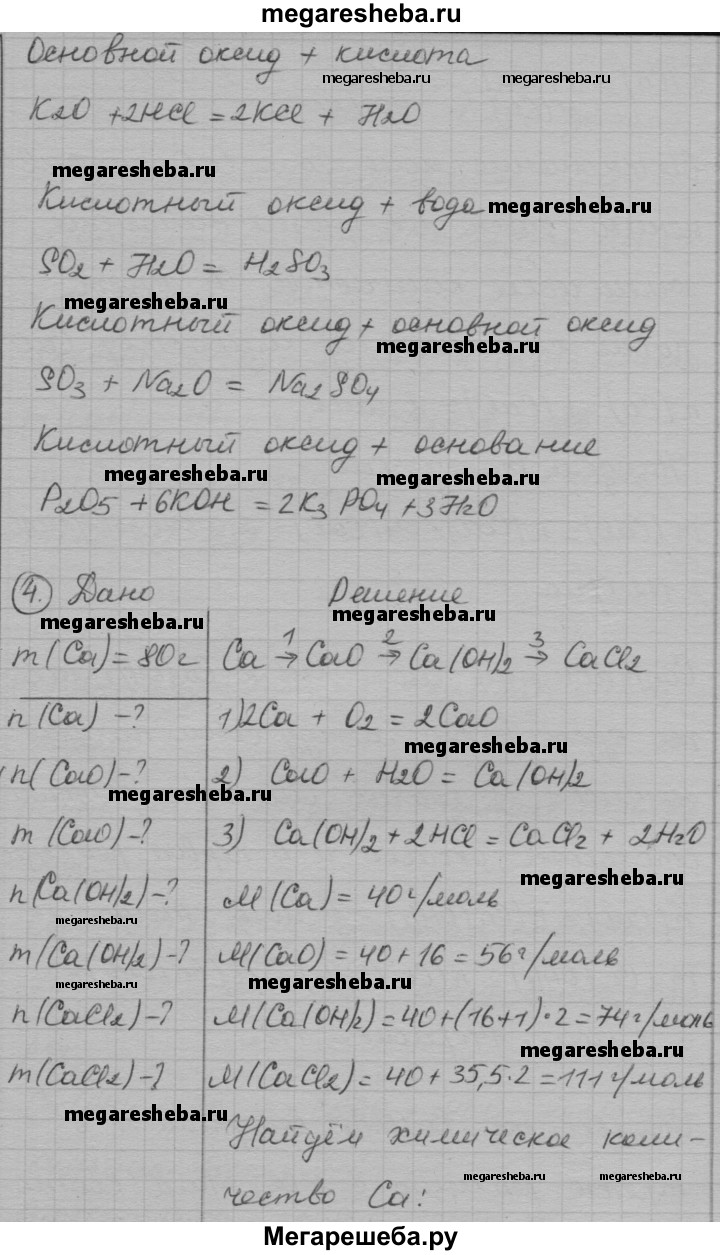 megaresheba.ru
Основной оксид + кислота
megaresheba.ru megaresheba.ru
K2O + 2HCl = 2KCl + H2O
megaresheba.ru
Кислотный оксид + вода megaresheba.ru
SO2 + H2O = H2SO3
megaresheba.ru
Кислотный оксид + основной оксид
megaresheba.ru
SO3 + Na2O = Na2SO4
Кислотный оксид + основание
megaresheba.ru megaresheba.ru
P2O5 + 6KOH = 2K3PO4 + 3H2O
4. Дано Решение
megaresheba.ru megaresheba.ru
m(Ca) = 80г Ca →1 CaO →2 Ca(OH)2 →3 CaCl2
n(Ca) - ? 1) 2Ca + O2 = 2CaO
megaresheba.ru
n(CaO) - ? 2) CaO + H2O = Ca(OH)2
megaresheba.ru
m(CaO) - ? 3) Ca(OH)2 + 2HCl = CaCl2 + 2H2O
megaresheba.ru
n(Ca(OH)2) - ? M(Ca) = 40 г/моль
megaresheba.ru
m(Ca(OH)2) - ? M(CaO) = 40 + 16 = 56 г/моль
megaresheba.ru
n(CaCl2) - ? M(Ca(OH)2) = 40 + (16 + 1) · 2 = 74 г/моль
megaresheba.ru
m(CaCl2) - ? M(CaCl2) = 40 + 35,5 · 2 = 111 г/моль
megaresheba.ru
Найдём химическое коли-
megaresheba.ru megaresheba.ru
чество Ca:
Мегарешеба.ру